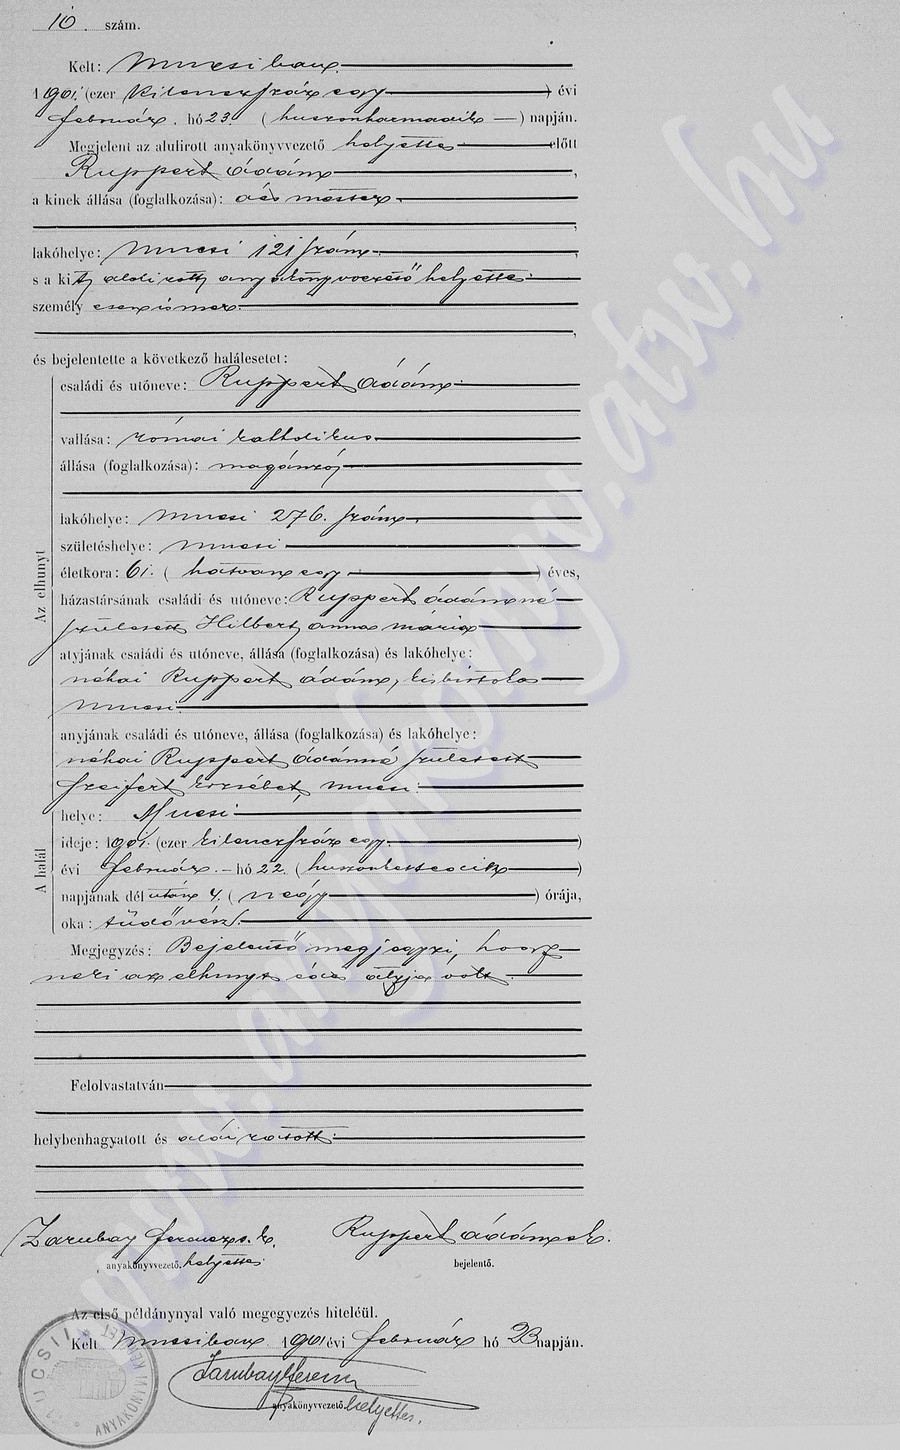 10. szám.
Kelt: Mucsiban
1901. (ezer kilenczszáz egy) évi
február hó 23. (huszonharmadik —) napján.
Megjelent az alulirott anyakönyvvezető helyettes előtt
Ruppert Ádám,
a kinek állása (foglalkozása): ács mester
lakóhelye: Mucsi 121 szám,
s a kit aldirott anyakönyvvezető helyettes
személyesen ismer,
és bejelentette a következő halálesetet:
Az elhunyt
családi és utóneve: Ruppert Ádám
vallása: római katholikus
állása (foglalkozása): magánzó
lakóhelye: Mucsi 276. szám
születéshelye: Mucsi
életkora: 61. (hatvan egy) éves,
házastársának családi és utóneve: Ruppert Ádámné
született Hilbert Anna Mária
atyjának családi és utóneve, állása (foglalkozása) és lakóhelye:
néhai Ruppert Ádám, kisbirtokos
Mucsi
anyjának családi és utóneve, állása (foglalkozása) és lakóhelye:
néhai Ruppert Ádámné született
Szeifert Erzsébet, Mucsi
A halál
helye: Mucsi
ideje: 1901. (ezer kilenczszáz egy)
évi február hó 22. (huszonkettedik)
napjának dél után 4. (négy) órája,
oka: tüdővész
Megjegyzés: Bejelentő megjegyzi, hogy
neki az elhunyt édes atyja volt.
Felolvastatván
helybenhagyatott és aláiratott
Zarubay Ferencz s. k. Ruppert Ádám s. k.
anyakönyvvezető. helyettes bejelentő.
Az első példánynyal való megegyezés hiteléül.
Kelt Mucsiban 1901 évi február hó 23 napján.
Zarubay Ferenc
anyakönyvvezető. helyettes.
MUCSI
www.anyakony.atw.hu